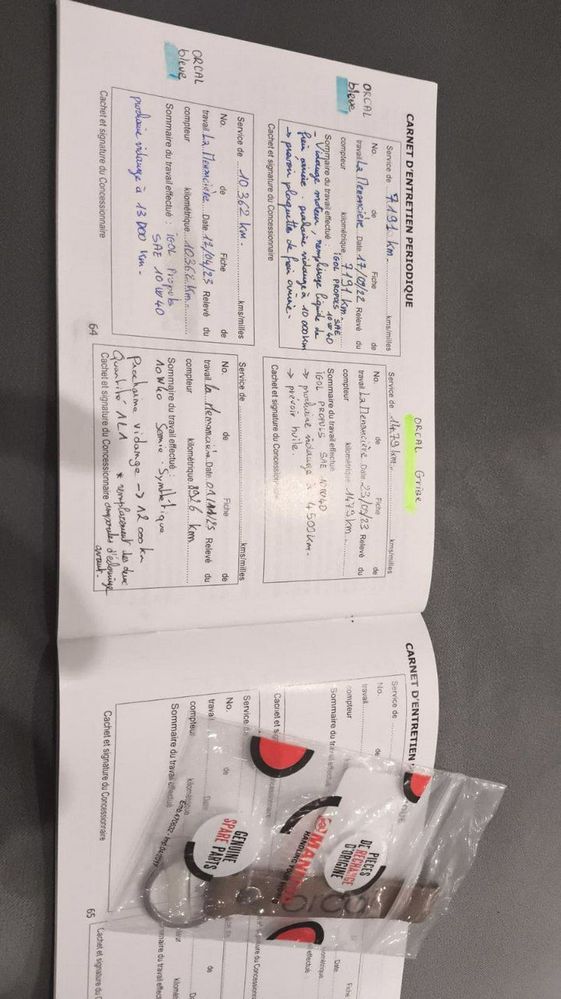 CARNET D'ENTRETIEN PERIODIQUE
ORCAL
bleue
Service de 7191 km. kms/milles
No. de Fiche de
travail La Menancière Date 17/09/22 Relevé du
compteur kilométrique 7191 km.
Sommaire du travail effectué : IGOL PROPULS SAE 10W40
- Vidange moteur, remplissage liquide de
frein arrière. prochaine vidange à 10 000 km
→ prévoir plaquette de frein arrière.
Cachet et signature du Concessionnaire
ORCAL
bleue
Service de 10 362 km. kms/milles
No. de Fiche de
travail La Menancière Date 12/04/23 Relevé du
compteur kilométrique 10362 km.
Sommaire du travail effectué : IGOL Propuls
SAE 10W40
prochaine vidange à 13 000 km.
Cachet et signature du Concessionnaire
64
ORCAL Grise
Service de 1479 km. kms/milles
No. de Fiche de
travail La Menancière Date 23/09/23 Relevé du
compteur kilométrique 1479 km.
Sommaire du travail effectué
IGOL PROPULS SAE 10W40
→ prochaine vidange à 4500 km.
→ prévoir huile.
Cachet et signature du Concessionnaire
Service de kms/milles
No. de Fiche de
travail La Menancière Date 01/11/25 Relevé du
compteur kilométrique 8926 km
Sommaire du travail effectué :
10W40 Semie-Synthétique
Prochaine vidange → 12 000 km
Quantité 1L1 * remplacement des deux
Cachet et signature du Concessionnaire ampoules d'éclairage
avant.
CARNET D'ENTRETIEN
Service de
No. de
travail
compteur
Sommaire du travail effectué
Cachet et
Service de
No. de
travail Date
compteur kilométrique
Sommaire du travail effectué
Cachet et signature du Concessionnaire
65
DE PIECES
RECHANGE
D'ORIGINE
GENUINE
SPARE PARTS
Date
effectué
Cachet et signature du